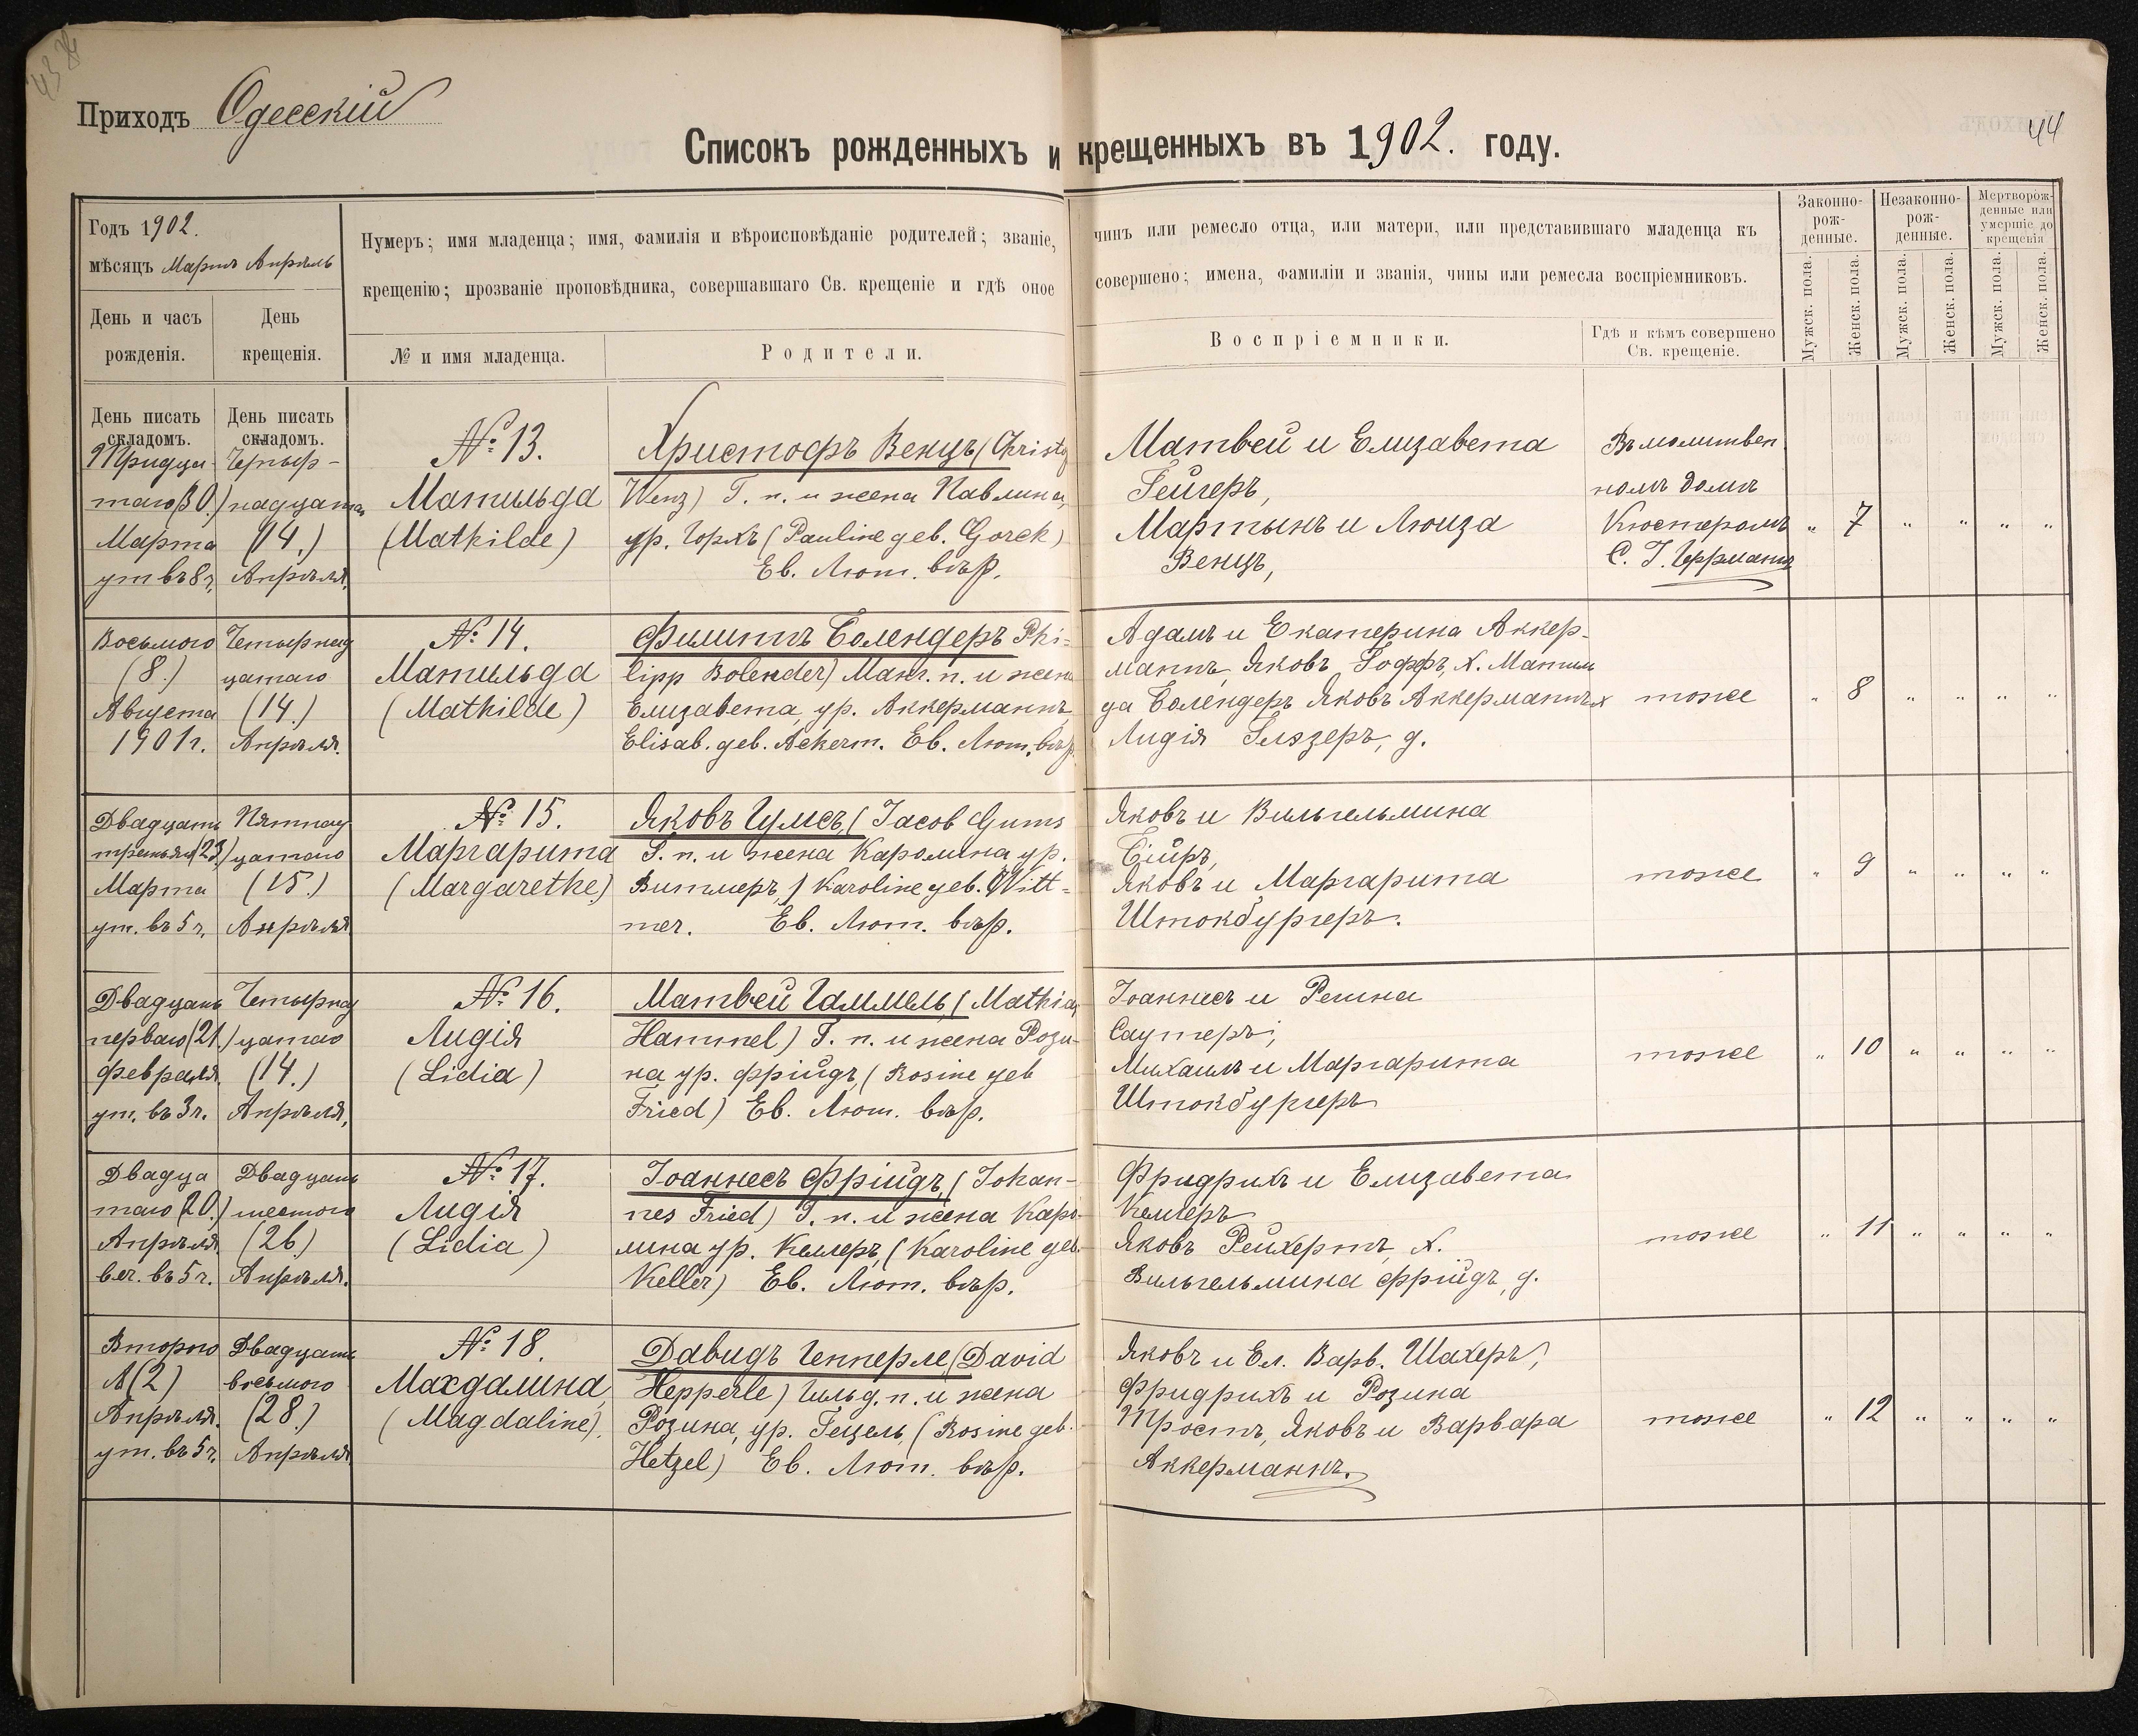 Приходъ Одесскій
44
Списокъ рожденныхъ и крещенныхъ въ 1902. году.
Годъ 1902.
мѣсяцъ Мартъ Апрѣль
День и часъ
рожденія.
День
крещенія.
Нумеръ; имя младенца; имя, фамилія и вѣроисповѣданіе родителей; званіе,
крещенію; прозваніе проповѣдника, совершавшаго Св. крещеніе и гдѣ оное
№ и имя младенца.
Родители.
чинъ или ремесло отца, или матери, или представившаго младенца къ
совершено; имена, фамиліи и званія, чины или ремесла воспріемниковъ.
Воспріемники.
Гдѣ и кѣмъ совершено
Св. крещеніе.
Законно-
рож-
денные.
Незаконно-
рож-
денные.
Мертворож-
денные или
умершіе до
крещенія
Мужск. пола.
Женск. пола.
Мужск. пола.
Женск. пола.
Мужск. пола.
Женск. пола.
День писать
складомъ.
День писать
складомъ.
Тридца-
таго (30.)
Марта
ут въ 8 ч,
Четыр-
надцата
(14.)
Апрѣля,
№ 13.
Матильда
(Mathilde)
Христофъ Венцъ (Christof
Wenz) Г. п. и жена Павлина,
ур. Горкъ (Pauline geb. Gorek)
Ев. Лют. вѣр.
Матвей и Елизавета
Гейгеръ,
Мартынъ и Люиза
Венцъ,
Въ молитвен
номъ домѣ
Кюстеромъ
С. Г. Германъ
" 7 " " " "
Восьмого
(8.)
Августа
1901 г.
Четырнад
цатаго
(14.)
Апрѣля.
№ 14.
Матильда
(Mathilde)
Филиппъ Болендеръ Phi=
lipp Bolender) Манг. п. и жена
Елизавета, ур. Аккерманнъ,
Elisab. geb. Ackerm. Ев. Лют. вѣр.
Адамъ и Екатерина Аккер-
маннъ, Яковъ Гоффъ, х. Матиль
да Болендеръ Яковъ Аккерманнъ х
Лидія Глэзеръ, д.
тоже
" 8 " " " "
Двадцать
третьяго (23.)
Марта
ут. въ 5 ч.
Пятнад
цатаго
(15.)
Апрѣля
№ 15.
Маргарита
(Margarethe.)
Яковъ Гумсъ, (Jacob Gums
Г. п. и жена Каролина ур.
Витмеръ,) Karoline geb. Witt=
mer. Ев. Лют. вѣр.
Яковъ и Вильгельмина
Бійръ,
Яковъ и Маргарита
Штокбургеръ.
тоже
" 9 " " " "
Двадцать
перваго (21.)
Февраля
ут. въ 3 ч.
Четырнад
цатаго
(14.)
Апрѣля,
№ 16.
Лидія
(Lidia)
Матвей Гаммель, (Mathias
Hammel) Г. п. и жена Рози-
на ур. Фрійдъ, (Rosine geb
Fried) Ев. Лют. вѣр.
Іоаннесъ и Регина
Саутеръ;
Михаилъ и Маргарита
Штокбургеръ
тоже
" 10 " " " "
Двадца
таго (20.)
Апрѣля
веч. въ 5 ч.
Двадцать
шестого
(26.)
Апрѣля.
№ 17.
Лидія
(Lidia)
Іоаннесъ Фрійдъ, (Johan-
nes Fried) Г. п. и жена Каро-
лина ур. Келлеръ, (Karoline geb.
Keller) Ев. Лют. вѣр.
Фридрихъ и Елизавета
Келлеръ
Яковъ Рейхертъ, х.
Вильгельмина Фрійдъ, д.
тоже
" 11 " " " "
Второго
(2)
Апрѣля.
ут. въ 5 ч.
Двадцать
восьмого
(28.)
Апрѣля
№ 18.
Магдалина,
(Magdaline).
Давидъ Гепперле (David
Hepperle) Гильд. п. и жена
Розина, ур. Гецель, (Rosine geb.
Hetzel) Ев. Лют. вѣр.
Яковъ и Ел. Варв. Шахеръ,
Фридрихъ и Розина
Тростъ, Яковъ и Варвара
Аккерманнъ.
тоже
" 12 " " " "